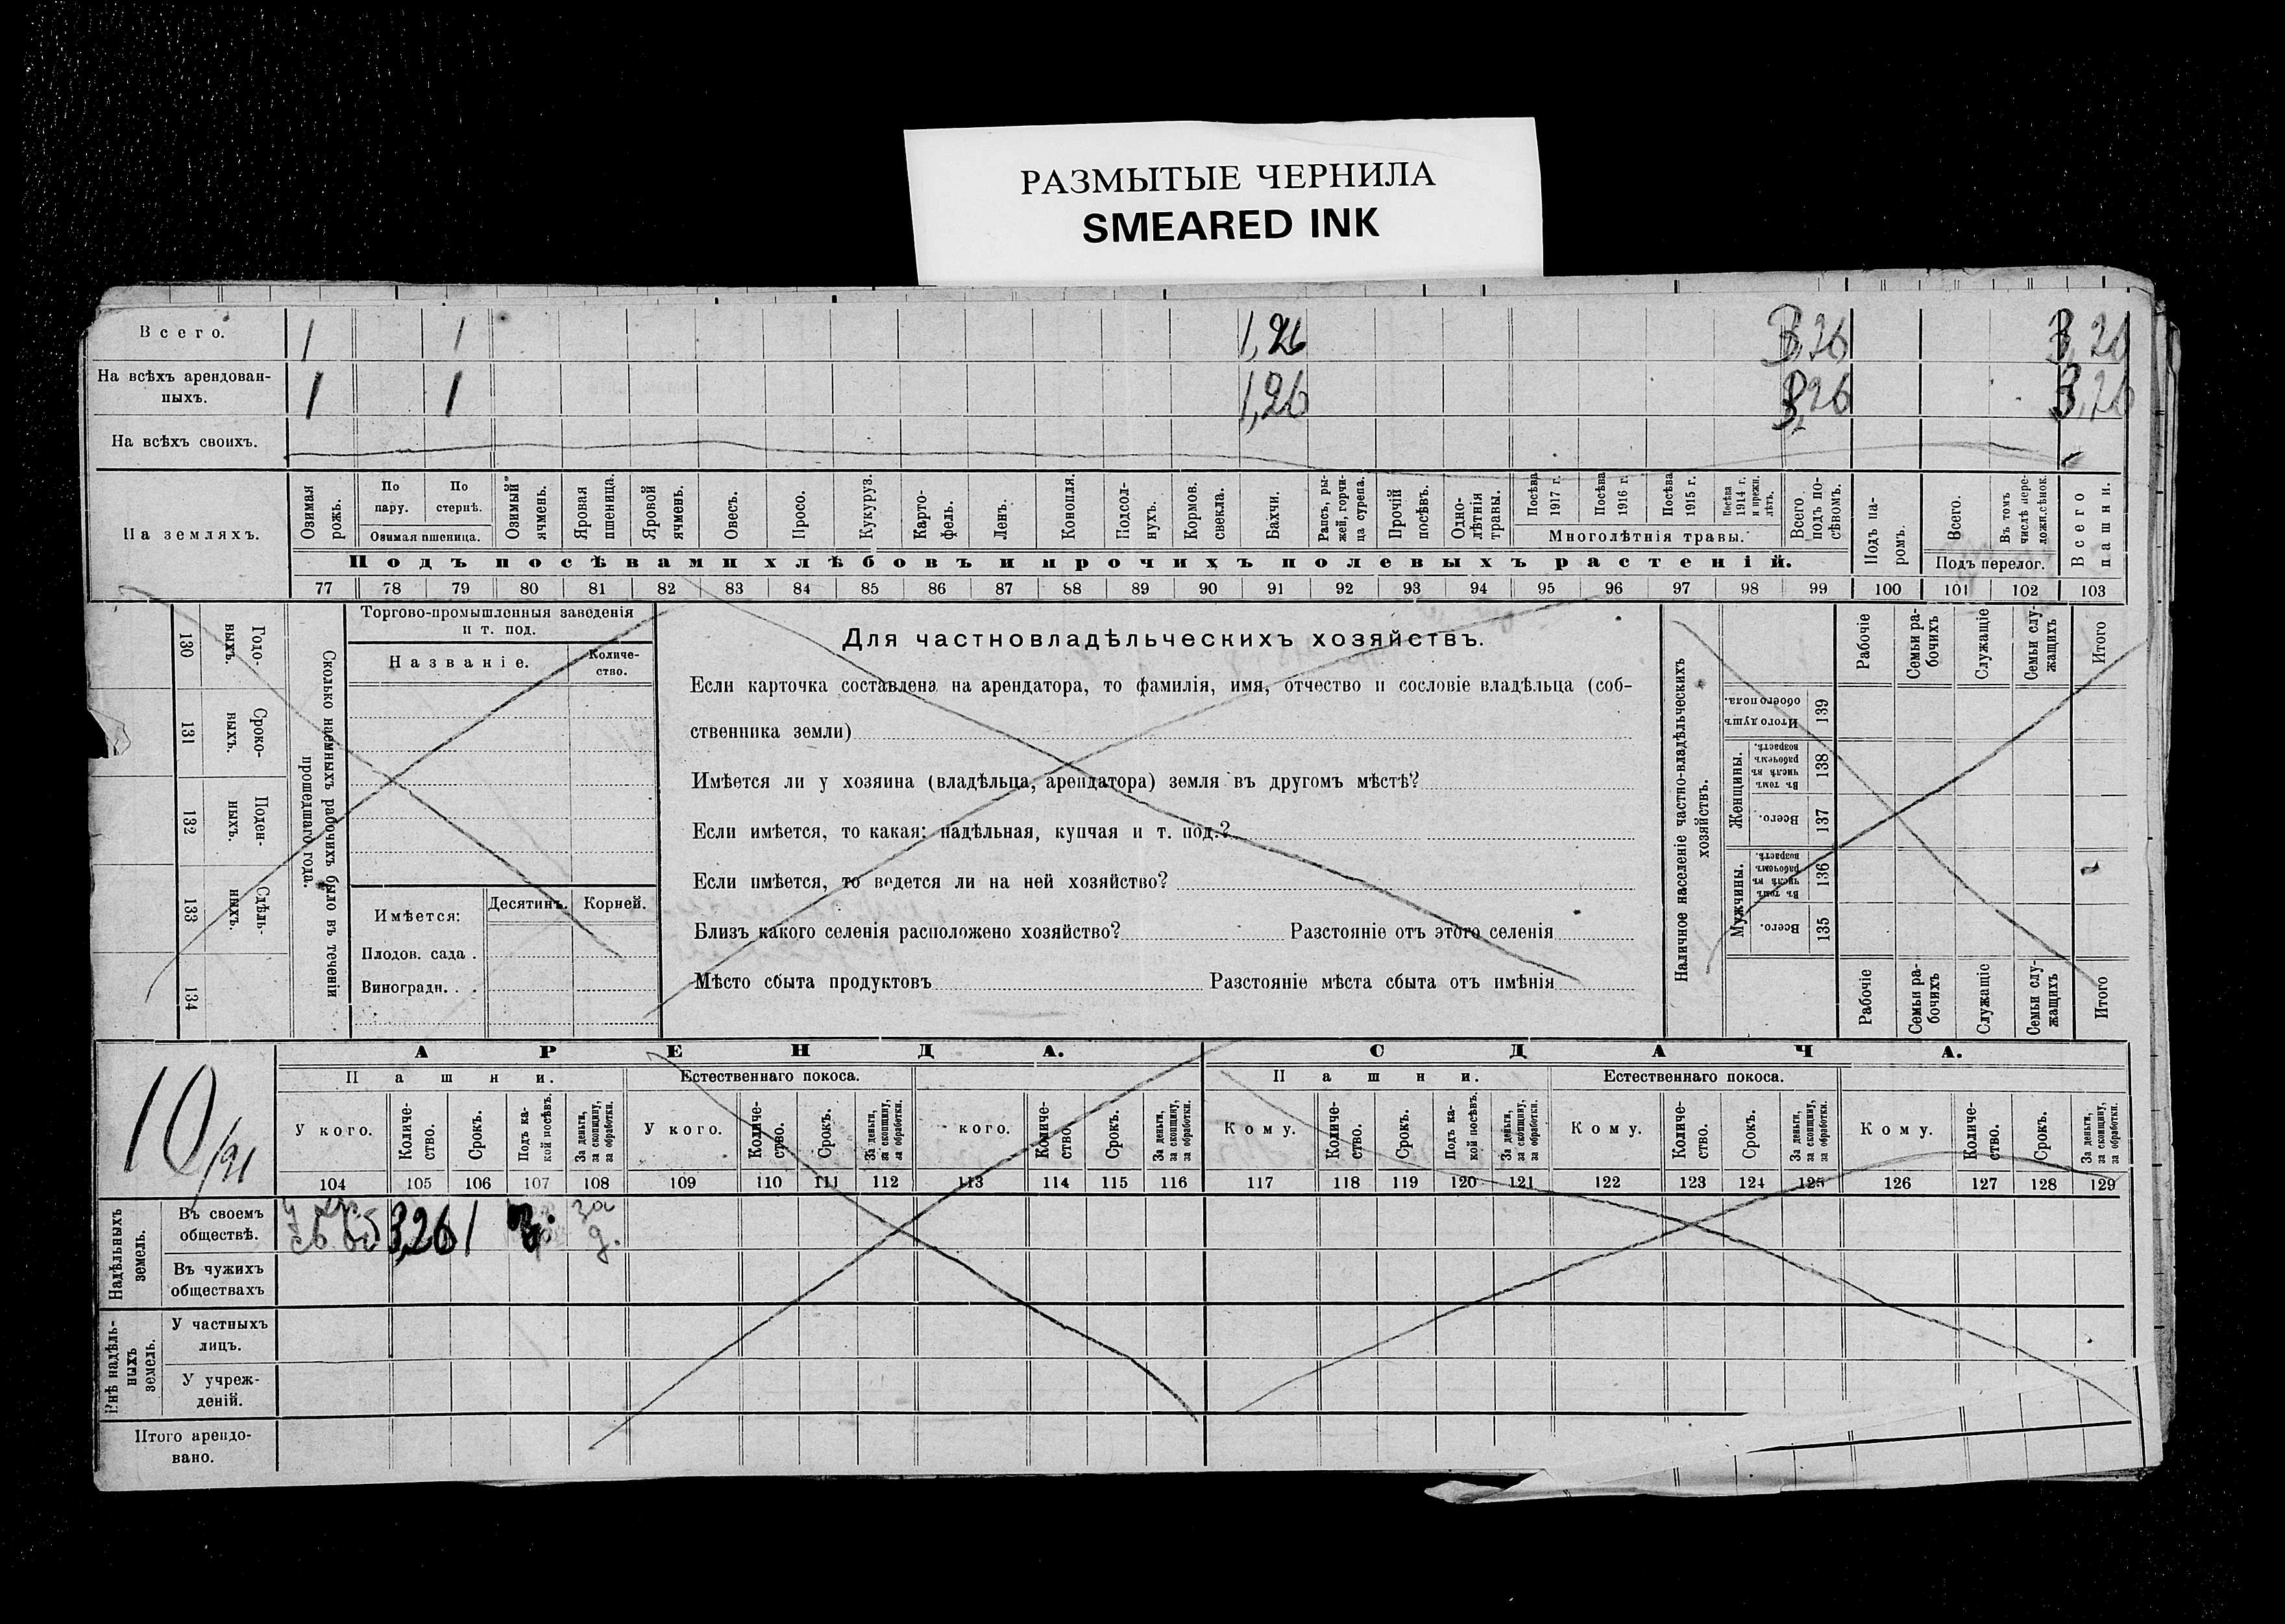 РАЗМЫТЫЕ ЧЕРНИЛА
SMEARED INK
Всего. 1 1 1,26 3,26 3,26
На всѣхъ арендован-
ныхъ. 1 1 1,26 3,26 3,26
На всѣхъ своихъ.
На земляхъ.
Озимая рожь.
По пару.
По стернѣ.
Озимая пшеница.
Озимый ячмень.
Яровая пшеница.
Яровой ячмень.
Овесъ.
Просо.
Кукуруз.
Карто-
фель.
Ленъ.
Конопля.
Подсол-
нухъ.
Кормов. свекла.
Бахчи.
Рапсъ, ры-
жей, горчи-
ца сурепа.
Прочій посѣвъ.
Одно-
лѣтнія травы.
Посѣва 1917 г.
Посѣва 1916 г.
Посѣва 1915 г.
Посѣва 1914 г. и прежн. лѣтъ.
Многолѣтнія травы.
Всего подъ по-
сѣвомъ.
Подъ па-
ромъ.
Всего.
Въ томъ числѣ пере-
ложн.сѣнок.
Подъ перелог.
Всего пашни.
Подъ посѣвами хлѣбовъ и прочихъ полевыхъ растеній.
77 78 79 80 81 82 83 84 85 86 87 88 89 90 91 92 93 94 95 96 97 98 99 100 101 102 103
130 Годо-
выхъ.
131 Сроко-
выхъ.
132 Поден-
ныхъ.
133 Сдѣль-
ныхъ.
134
Сколько наемныхъ рабочихъ было въ теченіи
прошедшаго года.
Торгово-промышленныя заведенія
и т. под.
Названіе.
Количе-
ство.
Имѣется:
Десятинъ.
Корней.
Плодов. сада .
Виноградн. . .
Для частновладѣльческихъ хозяйствъ.
Если карточка составлена на арендатора, то фамилія, имя, отчество и сословіе владѣльца (соб-
ственника земли)
Имѣется ли у хозяина (владѣльца, арендатора) земля въ другомъ мѣстѣ?
Если имѣется, то какая: надѣльная, купчая и т. под.?
Если имѣется, то ведется ли на ней хозяйство?
Близъ какого селенія расположено хозяйство? Разстояніе отъ этого селенія
Мѣсто сбыта продуктовъ Разстояніе мѣста сбыта отъ имѣнія
Наличное населеніе частно-владѣльческихъ
хозяйствъ.
Итого душъ обоего пола. 139
Женщины.
Въ томъ числѣ въ рабочемъ возрастѣ. 138
Всего. 137
Мужчины.
Въ томъ числѣ въ рабочемъ возрастѣ. 136
Всего. 135
Рабочіе
Семьи ра-
бочихъ
Служащіе
Семьи слу-
жащихъ
Итого
Рабочіе
Семьи ра-
бочихъ
Служащіе
Семьи слу-
жащихъ
Итого
АРЕНДА.
СДАЧА.
Пашни.
Естественнаго покоса.
Пашни.
Естественнаго покоса.
У кого.
Количе-
ство.
Срокъ.
Подъ ка-
кой посѣвъ.
За деньги, за скопщину, за обработки.
У кого.
Количе-
ство.
Срокъ.
За деньги, за скопщину, за обработки.
кого.
Количе-
ство.
Срокъ.
За деньги, за скопщину, за обработки.
Кому.
Количе-
ство.
Срокъ.
Подъ ка-
кой посѣвъ.
За деньги, за скопщину, за обработки.
Кому.
Количе-
ство.
Срокъ.
За деньги, за скопщину, за обработки.
Кому.
Количе-
ство.
Срокъ.
За деньги, за скопщину, за обработки.
104 105 106 107 108 109 110 111 112 113 114 115 116 117 118 119 120 121 122 123 124 125 126 127 128 129
Надѣльныхъ земель.
Въ своемъ
обществѣ. 3,26 1 за д.
Въ чужихъ
обществахъ
Внѣ надѣль-
ныхъ земель.
У частныхъ
лицъ.
У учреж-
деній.
Итого арендо-
вано.